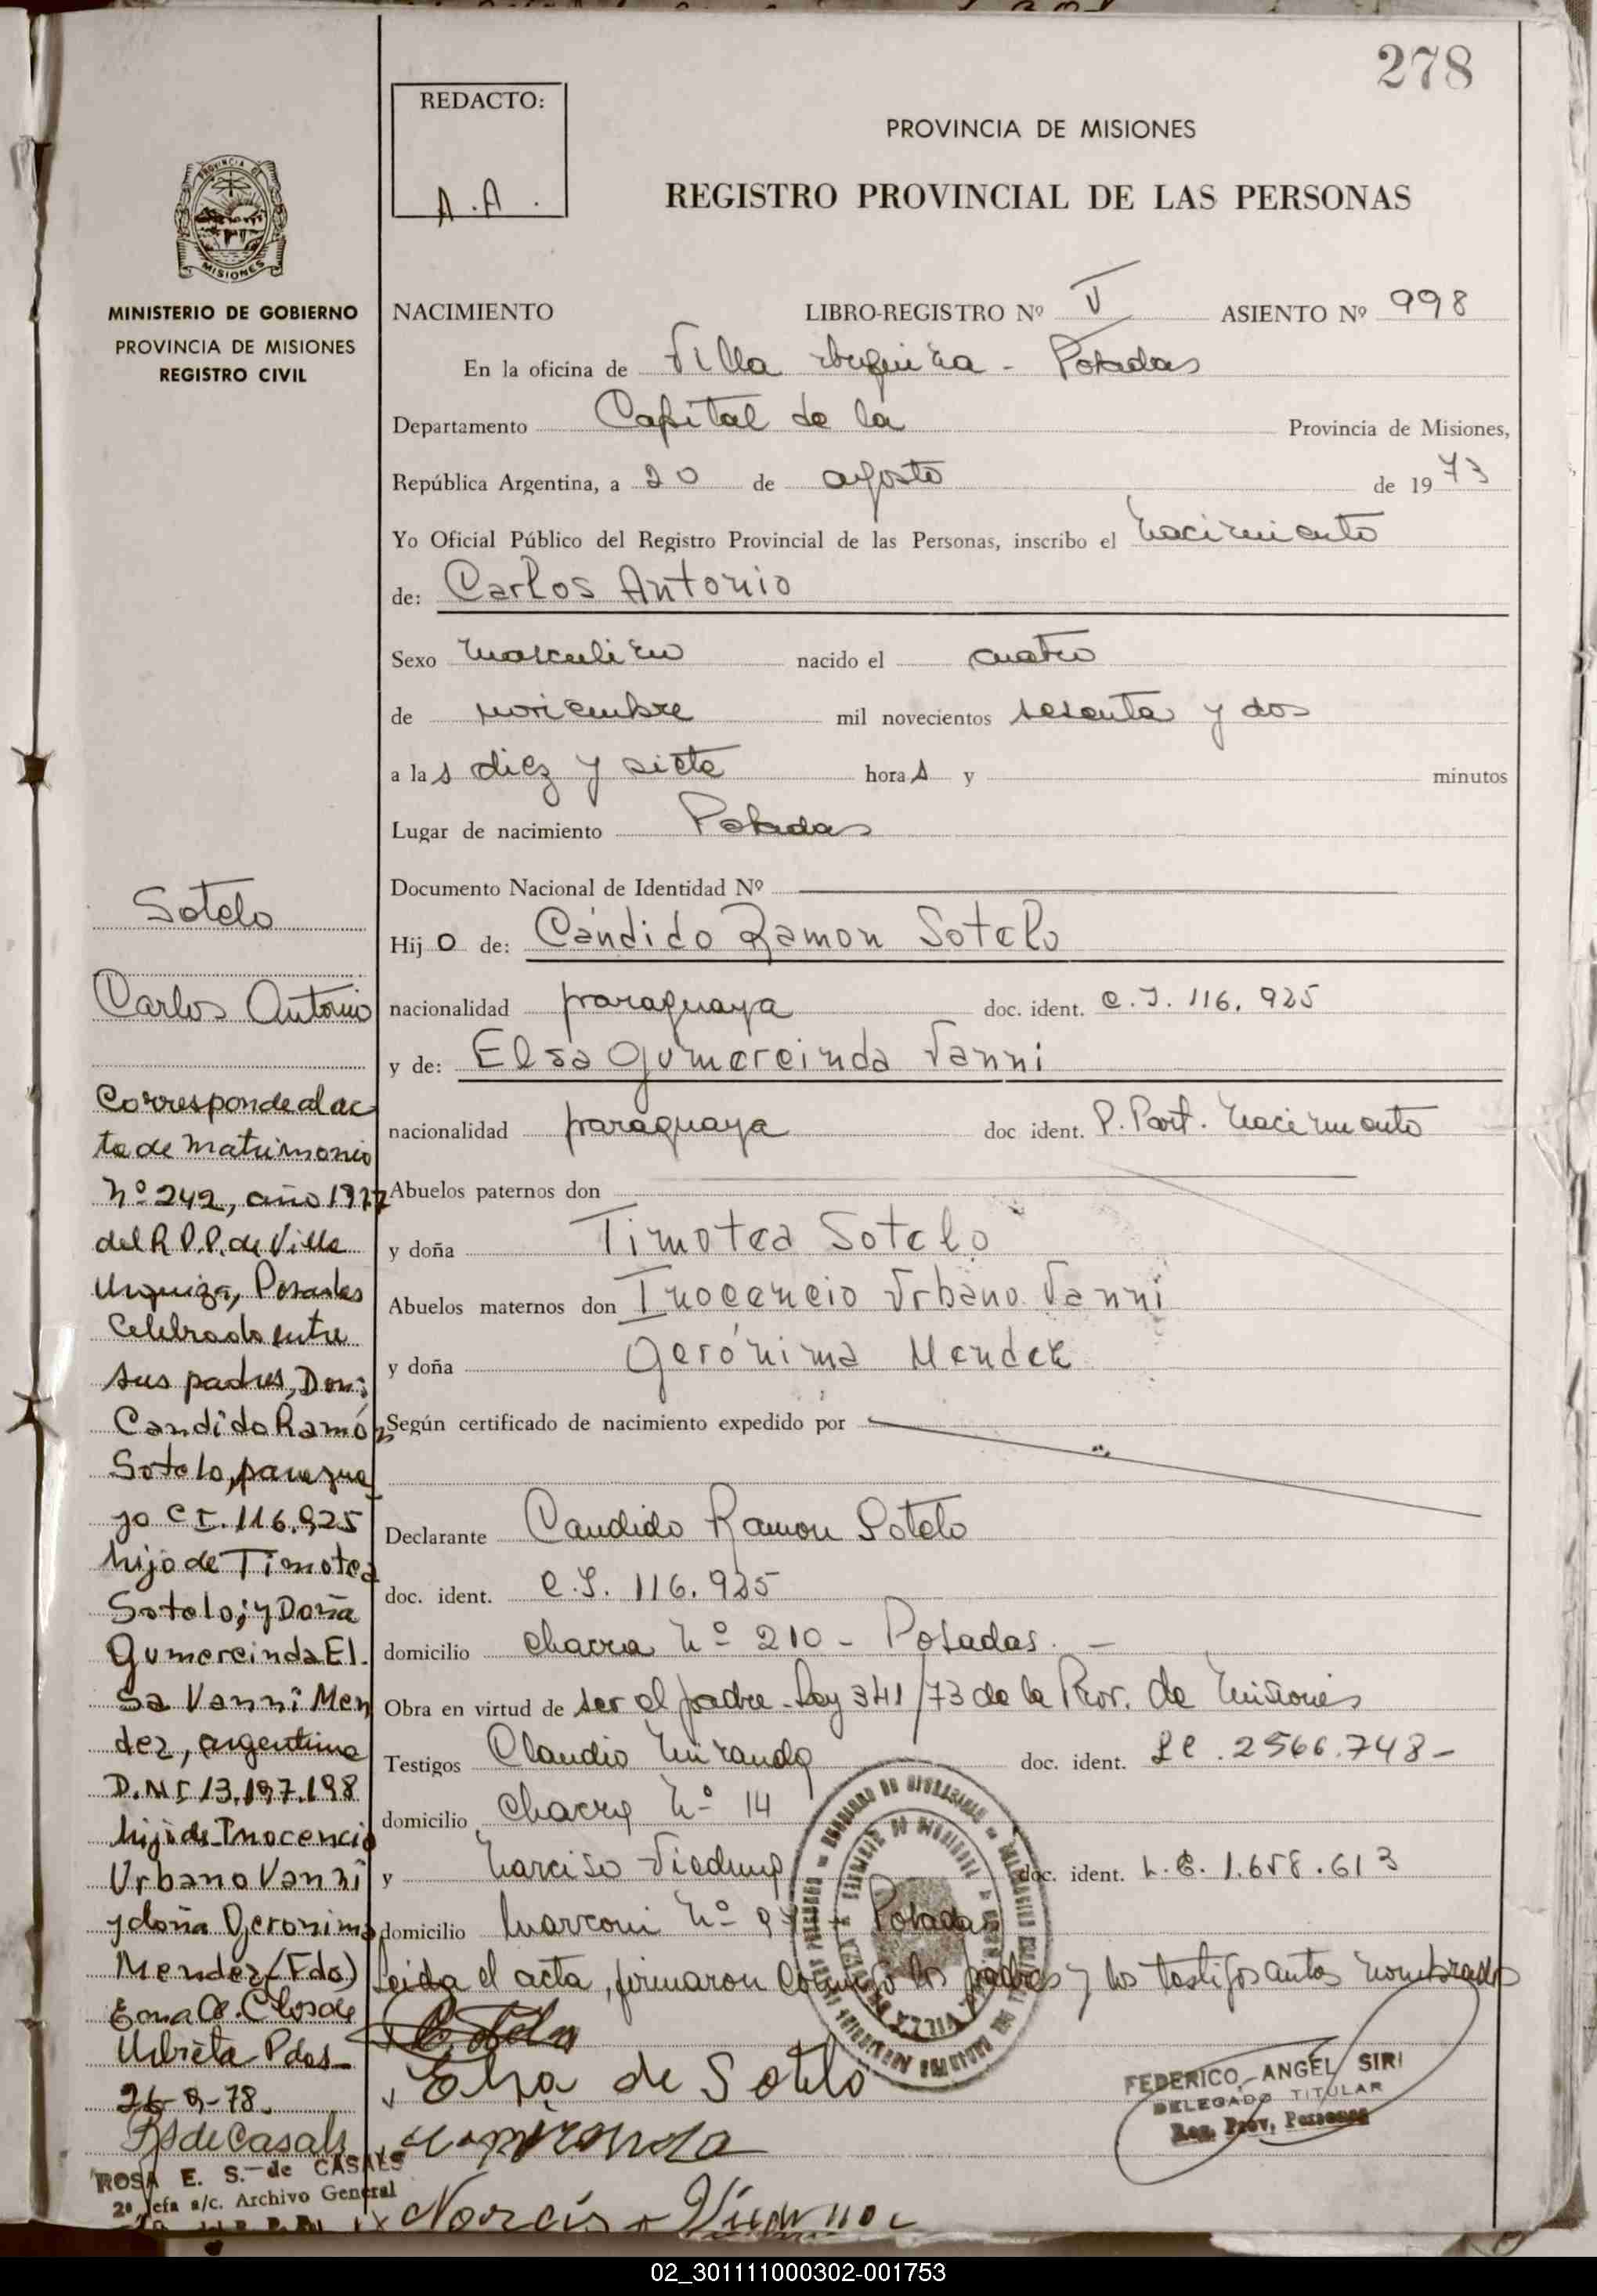 278
REDACTO:
A.A.
PROVINCIA DE MISIONES
REGISTRO PROVINCIAL DE LAS PERSONAS
PROVINCIA DE
MISIONES
MINISTERIO DE GOBIERNO
PROVINCIA DE MISIONES
REGISTRO CIVIL
NACIMIENTO LIBRO-REGISTRO Nº V ASIENTO Nº 998
En la oficina de Villa Urquiza - Posadas
Departamento Capital de la Provincia de Misiones,
República Argentina, a 20 de agosto de 1973
Yo Oficial Público del Registro Provincial de las Personas, inscribo el nacimiento
de: Carlos Antonio
Sexo masculino nacido el cuatro
de noviembre mil novecientos sesenta y dos
a las diez y siete horas y minutos
Lugar de nacimiento Posadas
Documento Nacional de Identidad Nº
Hijo de: Cándido Ramon Sotelo
nacionalidad paraguaya doc. ident. C.I. 116.925
y de: Elsa Gumercinda Vanni
nacionalidad paraguaya doc ident. P. Part. nacimiento
Abuelos paternos don
y doña Timotea Sotelo
Abuelos maternos don Inocencio Urbano Vanni
y doña Gerónima Mendez
Según certificado de nacimiento expedido por
Declarante Candido Ramon Sotelo
doc. ident. C.I. 116.925
domicilio chacra Nº 210 - Posadas. -
Obra en virtud de ser el padre - Ley 341/73 de la Prov. de Misiones
Testigos Claudio Miranda doc. ident. LE. 2566.748 -
domicilio chacra Nº 14
y Narciso doc. ident. L.E. 1.658.613
domicilio Marconi Nº Posadas
Leida el acta, firmaron conmigo los padres y los testigos antes nombrados
Elsa de Sotelo
FEDERICO ANGEL SIRI
DELEGADO TITULAR
Reg. Prov. Personas
Sotelo
Carlos Antonio
Corresponde al ac
ta de matrimonio
Nº 242, año 1977
del R.P.P. de Villa
Urquiza, Posadas
Celebrado entre
sus padres, Don:
Candido Ramón
Sotelo, paragua
yo C I. 116.925
hijo de Timotea
Sotelo; y Doña
Gumercinda El.
sa Vanni Men
dez, argentina
D.N.I 13.197.198
hija de Inocencio
Urbano Vanni
y doña Geronima
Mendez (Fdo)
Urbieta Pdas-
26-9-78.
RSdeCasals
ROSA E. S. de CASALS
2ª Jefa a/c. Archivo General
02_301111000302-001753